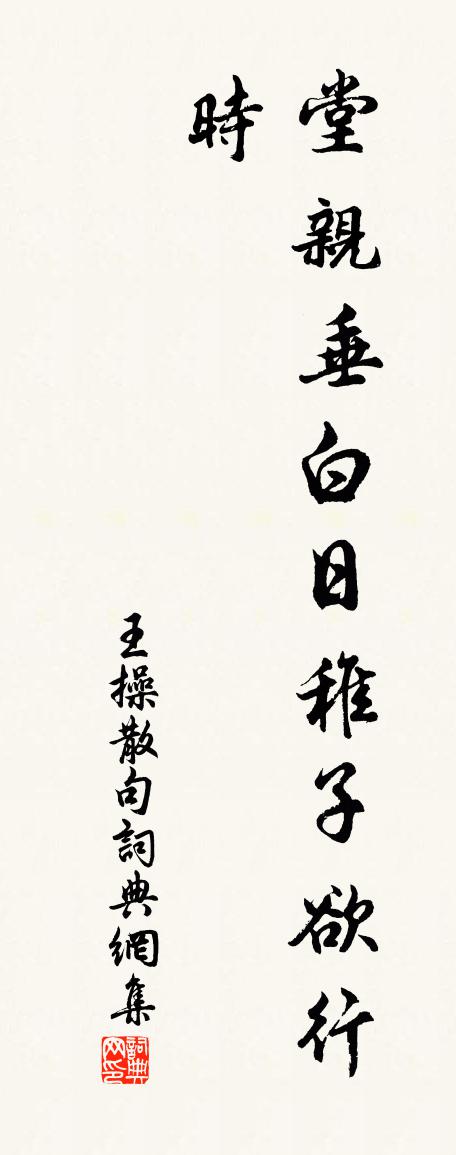 堂親垂白日稚子欲行
時
王操散句詞典網集
詞典
网印